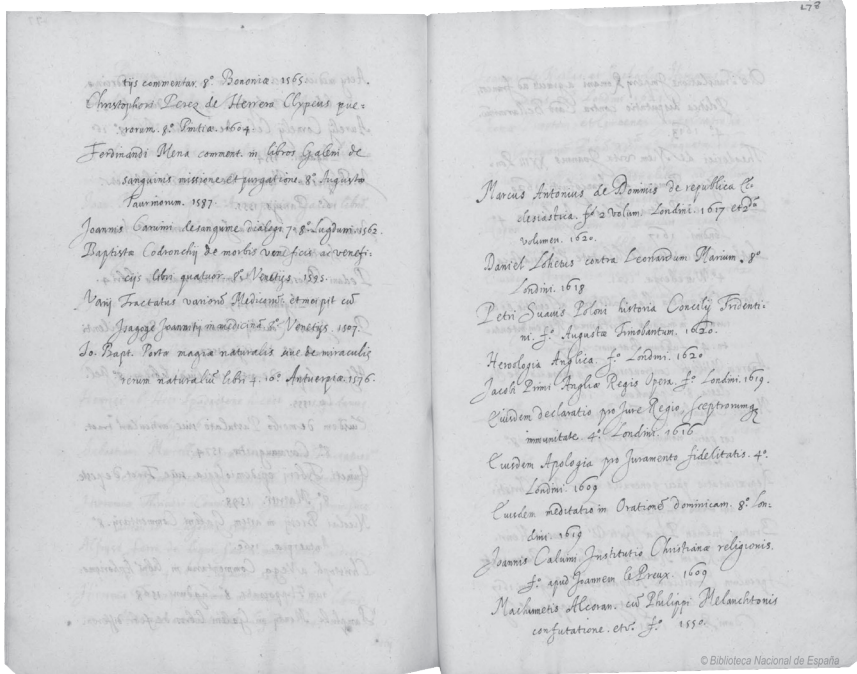 tijs commentar. 8º. Bononiæ 1565.
Christophori Perez de Herrera Clypeus pue-
rorum. 8º. Pintiæ. 1604.
Ferdinandi Mena comment. in libros Galeni de
sanguinis missione et purgatione. 8º. Augustæ
Taurinorum. 1587.
Joannis Canuini de sanguine dialogi. 7. 8º. Lugduni. 1562.
Baptistæ Codronchij de morbis veneficis ac venefi-
cijs libri quatuor. 8º. Venetijs. 1595.
Varij Tractatus variorũ Medicorũ et incipit cũ
Isagoge Joannitij in medicinã. 8º. Venetijs. 1507.
Jo. Bapt. Porta magia naturalis siue de miraculis
rerum naturaliũ libri 4. 16º. Antuerpiæ. 1576.
278
Marcus Antonius de Dominis de republica Ec-
clesiastica. fº. 2 volum. Londini. 1617 et 2dũ
volumen. 1620.
Daniel Lohetus contra Leonardum Marium. 8º
Londini. 1618
Petri Suauis Poloni historia Concilij Tridenti-
ni. fº. Augustæ Trinobantum. 1620.
Herωologia Anglica. fº. Londini. 1620
Jacobi Primi Angliæ Regis Opera. fº. Londini. 1619.
Eiusdem declaratio pro Jure Regio, sceptrorumq
immunitate. 4º. Londini. 1616
Eiusdem Apologia pro Juramento fidelitatis. 4º.
Londini. 1609
Eiusdem meditatio in Orationẽ dominicam. 8º. Lon-
dini. 1619
Joannis Caluini Institutio Christianæ religionis.
fº. apud Joannem le Preux. 1609
Machumetis Alcoran. cũ Philippi Melanchtonis
confutatione. etc. fº. 1550.
© Biblioteca Nacional de España